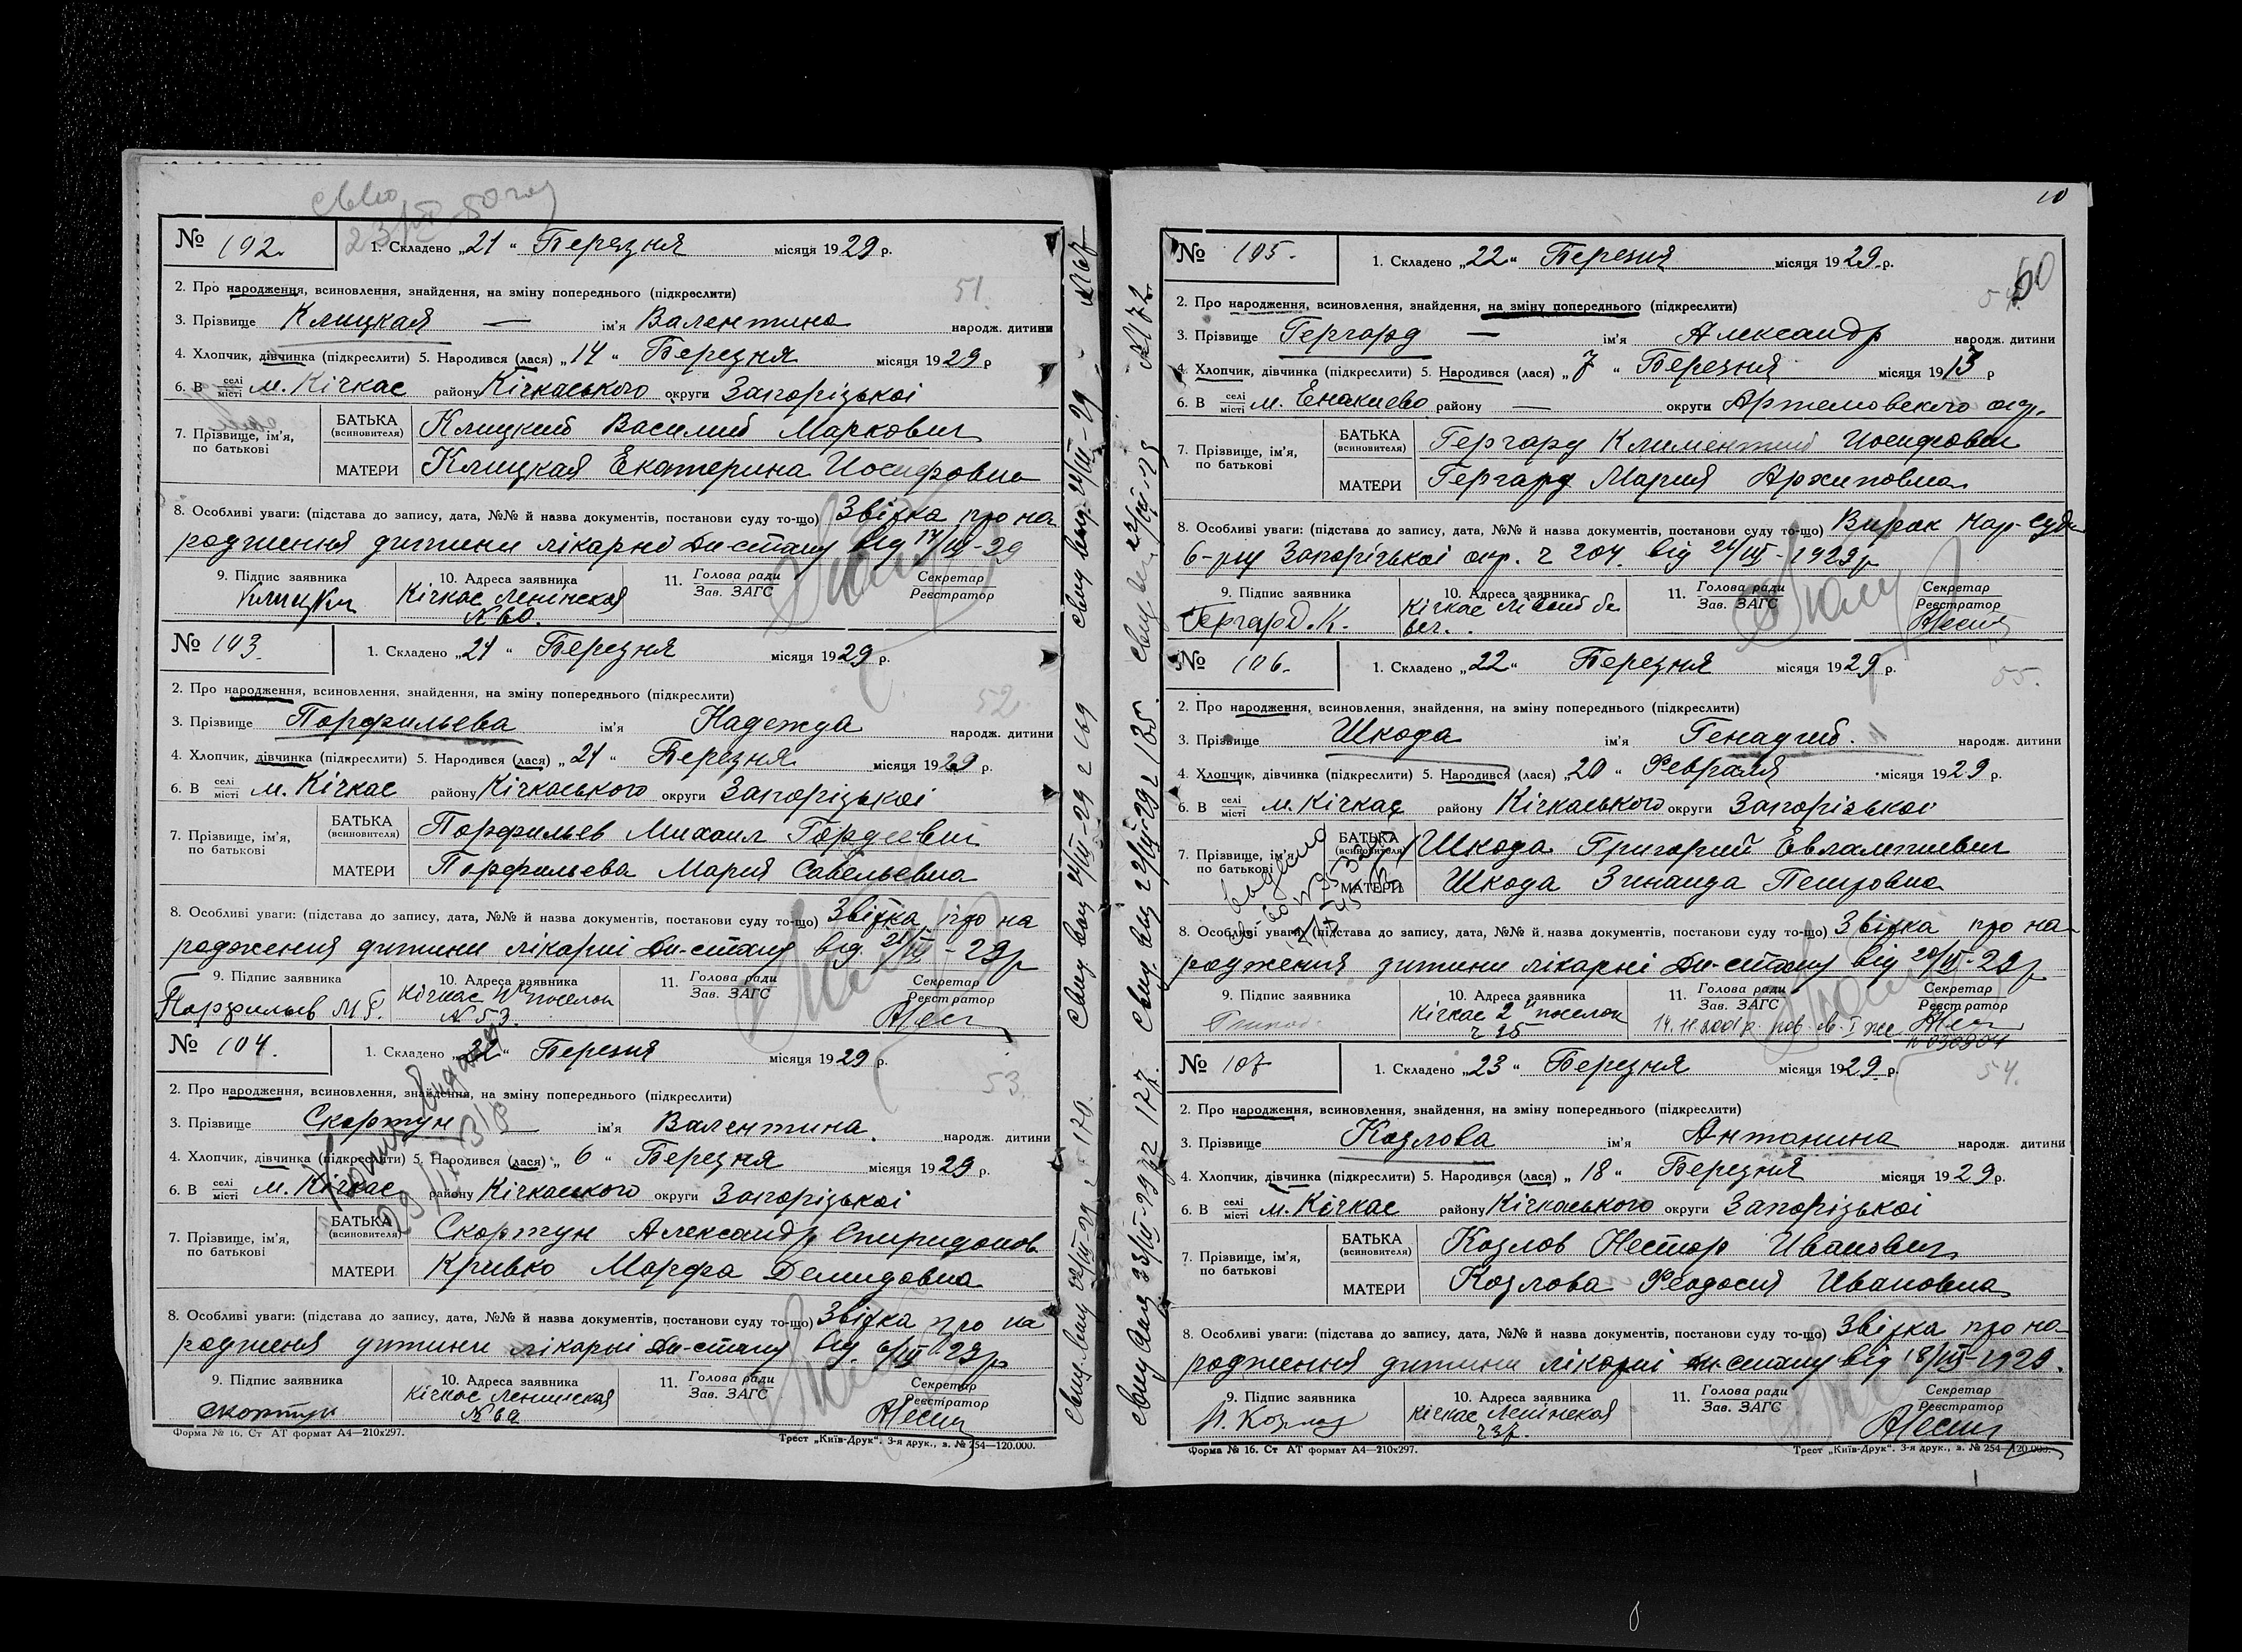 № 192.
1. Складено „21“ Березня місяця 1929 р.
2. Про народження, всиновлення, знайдення, на зміну попереднього (підкреслити)
51.
3. Прізвище Клицкая — ім'я Валентина народж. дитини
4. Хлопчик, дівчинка (підкреслити) 5. Народився (лася) „14“ Березня місяця 1929 р
6. В селі місті м. Кічкас району Кічкаського округи Запорізькоі
7. Прізвище, ім'я, по батькові
БАТЬКА (всиновителя) Клицкий Василий Маркович
МАТЕРИ Клицкая Екатерина Иосифовна
8. Особливі уваги: (підстава до запису, дата, №№ й назва документів, постанови суду то-що) Звістка про на
родження дитини лікарні Дн-стану від 14/III-29
9. Підпис заявника
10. Адреса заявника Кічкас Ленінская № 60.
11. Голова ради Зав. ЗАГС
Секретар Реєстратор
№ 193.
1. Складено „21“ Березня місяця 1929 р.
2. Про народження, всиновлення, знайдення, на зміну попереднього (підкреслити)
52.
3. Прізвище Порфильева ім'я Надежда народж. дитини
4. Хлопчик, дівчинка (підкреслити) 5. Народився (лася) „21“ Березня місяця 1929 р.
6. В селі місті м. Кічкас району Кічкаського округи Запорізькоі
7. Прізвище, ім'я, по батькові
БАТЬКА (всиновителя) Порфильев Михаил Гордеевич
МАТЕРИ Порфильева Мария Савельевна
8. Особливі уваги: (підстава до запису, дата, №№ й назва документів, постанови суду то-що) Звістка про на
родження дитини лікарні Дн-стану від 21/III-29р
9. Підпис заявника Порфильев М. Г.
10. Адреса заявника Кічкас поселок № 53.
11. Голова ради Зав. ЗАГС
Секретар Реєстратор
№ 104.
1. Складено „22“ Березня місяця 1929 р.
2. Про народження, всиновлення, знайдення, на зміну попереднього (підкреслити)
53.
3. Прізвище Скортун — ім'я Валентина. народж. дитини
4. Хлопчик, дівчинка (підкреслити) 5. Народився (лася) „6“ Березня місяця 1929 р.
6. В селі місті м. Кічкас району Кічкаського округи Запорізькоі
7. Прізвище, ім'я, по батькові
БАТЬКА (всиновителя) Скортун Александр Спиридонов
МАТЕРИ Кривко Марфа Демидовна
8. Особливі уваги: (підстава до запису, дата, №№ й назва документів, постанови суду то-що) Звістка про на
родження дитини лікарні Дн-стану від 6/III 29р
9. Підпис заявника Скортун
10. Адреса заявника Кічкас Ленинская № 60
11. Голова ради Зав. ЗАГС
Секретар Реєстратор
Форма № 16. Ст АТ формат А4—210х297.
Трест „Київ-Друк“. 3-я друк., з. № 254—120.000.
10
№ 105.
1. Складено „22“ Березня місяця 1929 р.
60
2. Про народження, всиновлення, знайдення, на зміну попереднього (підкреслити)
3. Прізвище Гергард — ім'я Александр народж. дитини
4. Хлопчик, дівчинка (підкреслити) 5. Народився (лася) „7“ Березня місяця 1913 р
6. В селі місті м. Енакиево району — округи Артемовского окр.
7. Прізвище, ім'я, по батькові
БАТЬКА (всиновителя) Гергард Климентий Иосифович
МАТЕРИ Гергард Мария Архиповна
8. Особливі уваги: (підстава до запису, дата, №№ й назва документів, постанови суду то-що) Вирок Нар-суду
6-рну Запорізькоі окр. ч 204. від 21/III-1929р
9. Підпис заявника Гергард. К.
10. Адреса заявника Кічкас
11. Голова ради Зав. ЗАГС
Секретар Реєстратор
№ 106.
1. Складено „22“ Березня місяця 1929 р.
55.
2. Про народження, всиновлення, знайдення, на зміну попереднього (підкреслити)
3. Прізвище Шкода ім'я Генадий. народж. дитини
4. Хлопчик, дівчинка (підкреслити) 5. Народився (лася) „20“ Февраля місяця 1929 р.
6. В селі місті м. Кічкас району Кічкаського округи Запорізькоі
7. Прізвище, ім'я, по батькові
БАТЬКА (всиновителя) Шкода Григорий Евлампиевич
МАТЕРИ Шкода Зинаида Петровна
8. Особливі уваги: (підстава до запису, дата, №№ й назва документів, постанови суду то-що) Звістка про на
родження дитини лікарні Дн-стану від 20/II-29р
9. Підпис заявника
10. Адреса заявника Кічкас 2й поселок ч 25
11. Голова ради Зав. ЗАГС
Секретар Реєстратор
№ 107
1. Складено „23“ Березня місяця 1929 р.
54.
2. Про народження, всиновлення, знайдення, на зміну попереднього (підкреслити)
3. Прізвище Козлова ім'я Антонина народж. дитини
4. Хлопчик, дівчинка (підкреслити) 5. Народився (лася) „18“ Березня місяця 1929 р.
6. В селі місті м. Кічкас району Кічкаського округи Запорізькоі
7. Прізвище, ім'я, по батькові
БАТЬКА (всиновителя) Козлов Нестор Иванович
МАТЕРИ Козлова Феодосия Ивановна
8. Особливі уваги: (підстава до запису, дата, №№ й назва документів, постанови суду то-що) Звістка про на
родження дитини лікарні Дн-стану від 18/III-1929.
9. Підпис заявника Н. Козлов
10. Адреса заявника Кічкас Ленінская ч 37.
11. Голова ради Зав. ЗАГС
Секретар Реєстратор
Форма № 16. Ст АТ формат А4—210х297.
Трест „Київ-Друк“. 3-я друк., з. № 254—120.000.